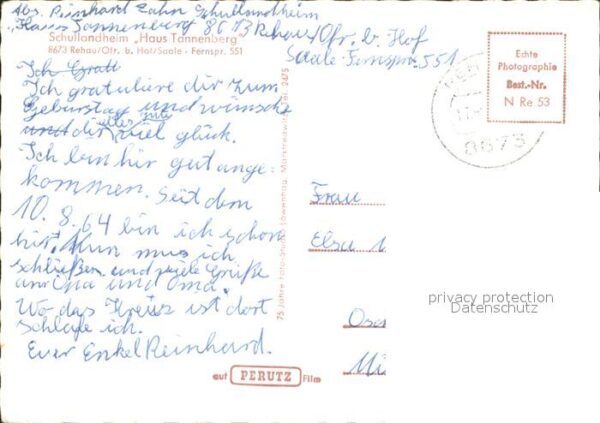 Abs. Reinhard Zahn Schullandheim
"Haus Tannenberg 8673 Rehau/Ofr. b. Hof
Saale Fernspr. 551
Schullandheim „Haus Tannenberg"
8673 Rehau/Ofr. b. Hof/Saale - Fernspr. 551
Echte
Photographie
Best.-Nr.
N Re 53
8673
Ich Gratt
Ich gratuliere dir zum
Geburstag und wünsche
und dir alles gute
viel glück.
Ich bin hir gut ange-
kommen. Seit dem
10. 8. 64 bin ich schon
hir. Nun mus ich
schließen und viele Grüße
an Opa und Oma.
Wo das Kreuz ist dort
schlafe ich.
Euer Enkel Reinhard.
75 Jahre Foto-Studio Löwenhag, Marktredwitz, Tel. 2475
Frau
Elsa
privacy protection
Datenschutz
auf PERUTZ Film